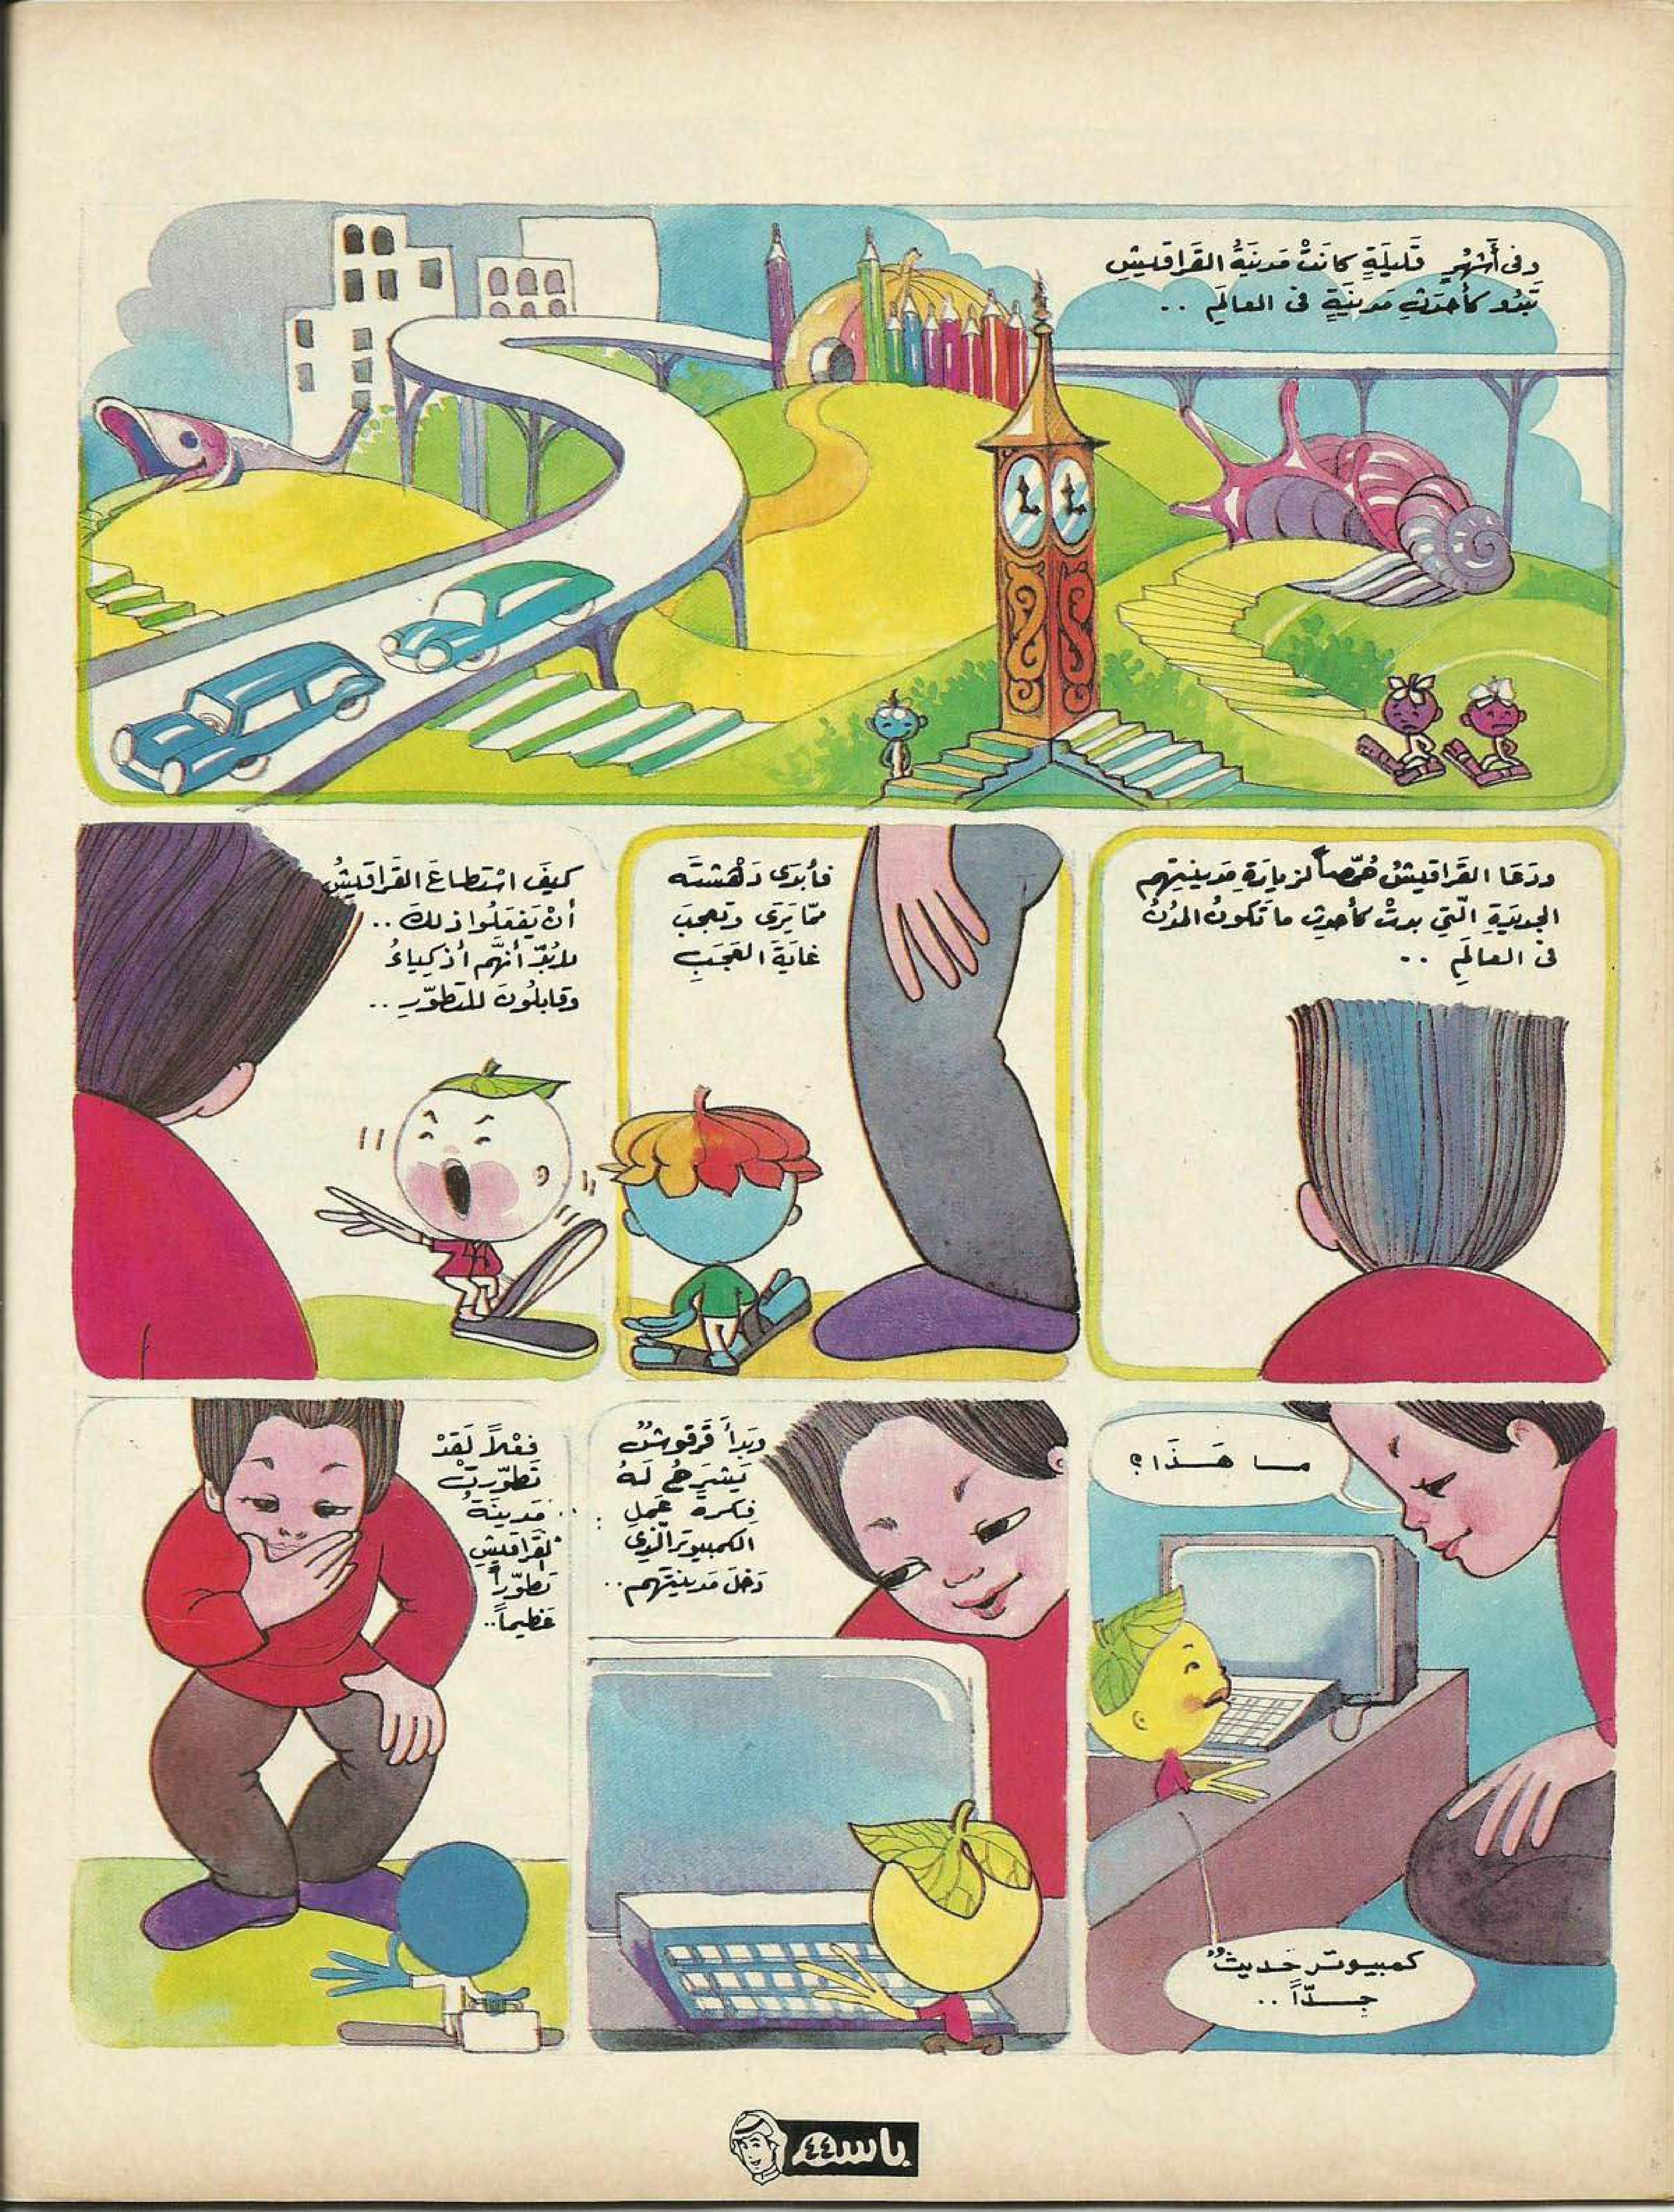 وفى أَشهُرٍ قَليلَةٍ كانَتْ مَدينَةُ القَراقيشِ
تَبْدُو كأَحدَثِ مَدينَةٍ فى العالَمِ ..
ودَعَا القَراقيشُ حُمّصاً لزيارَةِ مَدينتِهم
الجديدَةِ الّتي بدتْ كأحدثِ ما تَكونُ المدُنُ
فى العالَمِ ..
فأبْدَى دَهْشتَه
ممّا يَرَى وتعجبَ
غايَةَ العَجَبِ
كيفَ اسْتطاعَ القَراقيشُ
أنْ يَفعَلُوا ذلكَ ..
لابُدّ أنهَّم أذكياءُ
وقابلُونَ للتطوّرِ ..
ما هَـذَا؟
كمبيوتر حديثٌ
جـدّاً ..
وبَدأَ قَرقوشٌ
يَشرَحُ لَهُ
فِكرةَ عَملِ
الكمبيوتر الّذي
دَخلَ مَدينتَهم ..
فِعْلاً لَقَدْ
تَطوّرتْ
مَدينَةُ
القَراقيشِ
تَطوّراً
عَظيماً ..
باسم
٤٤